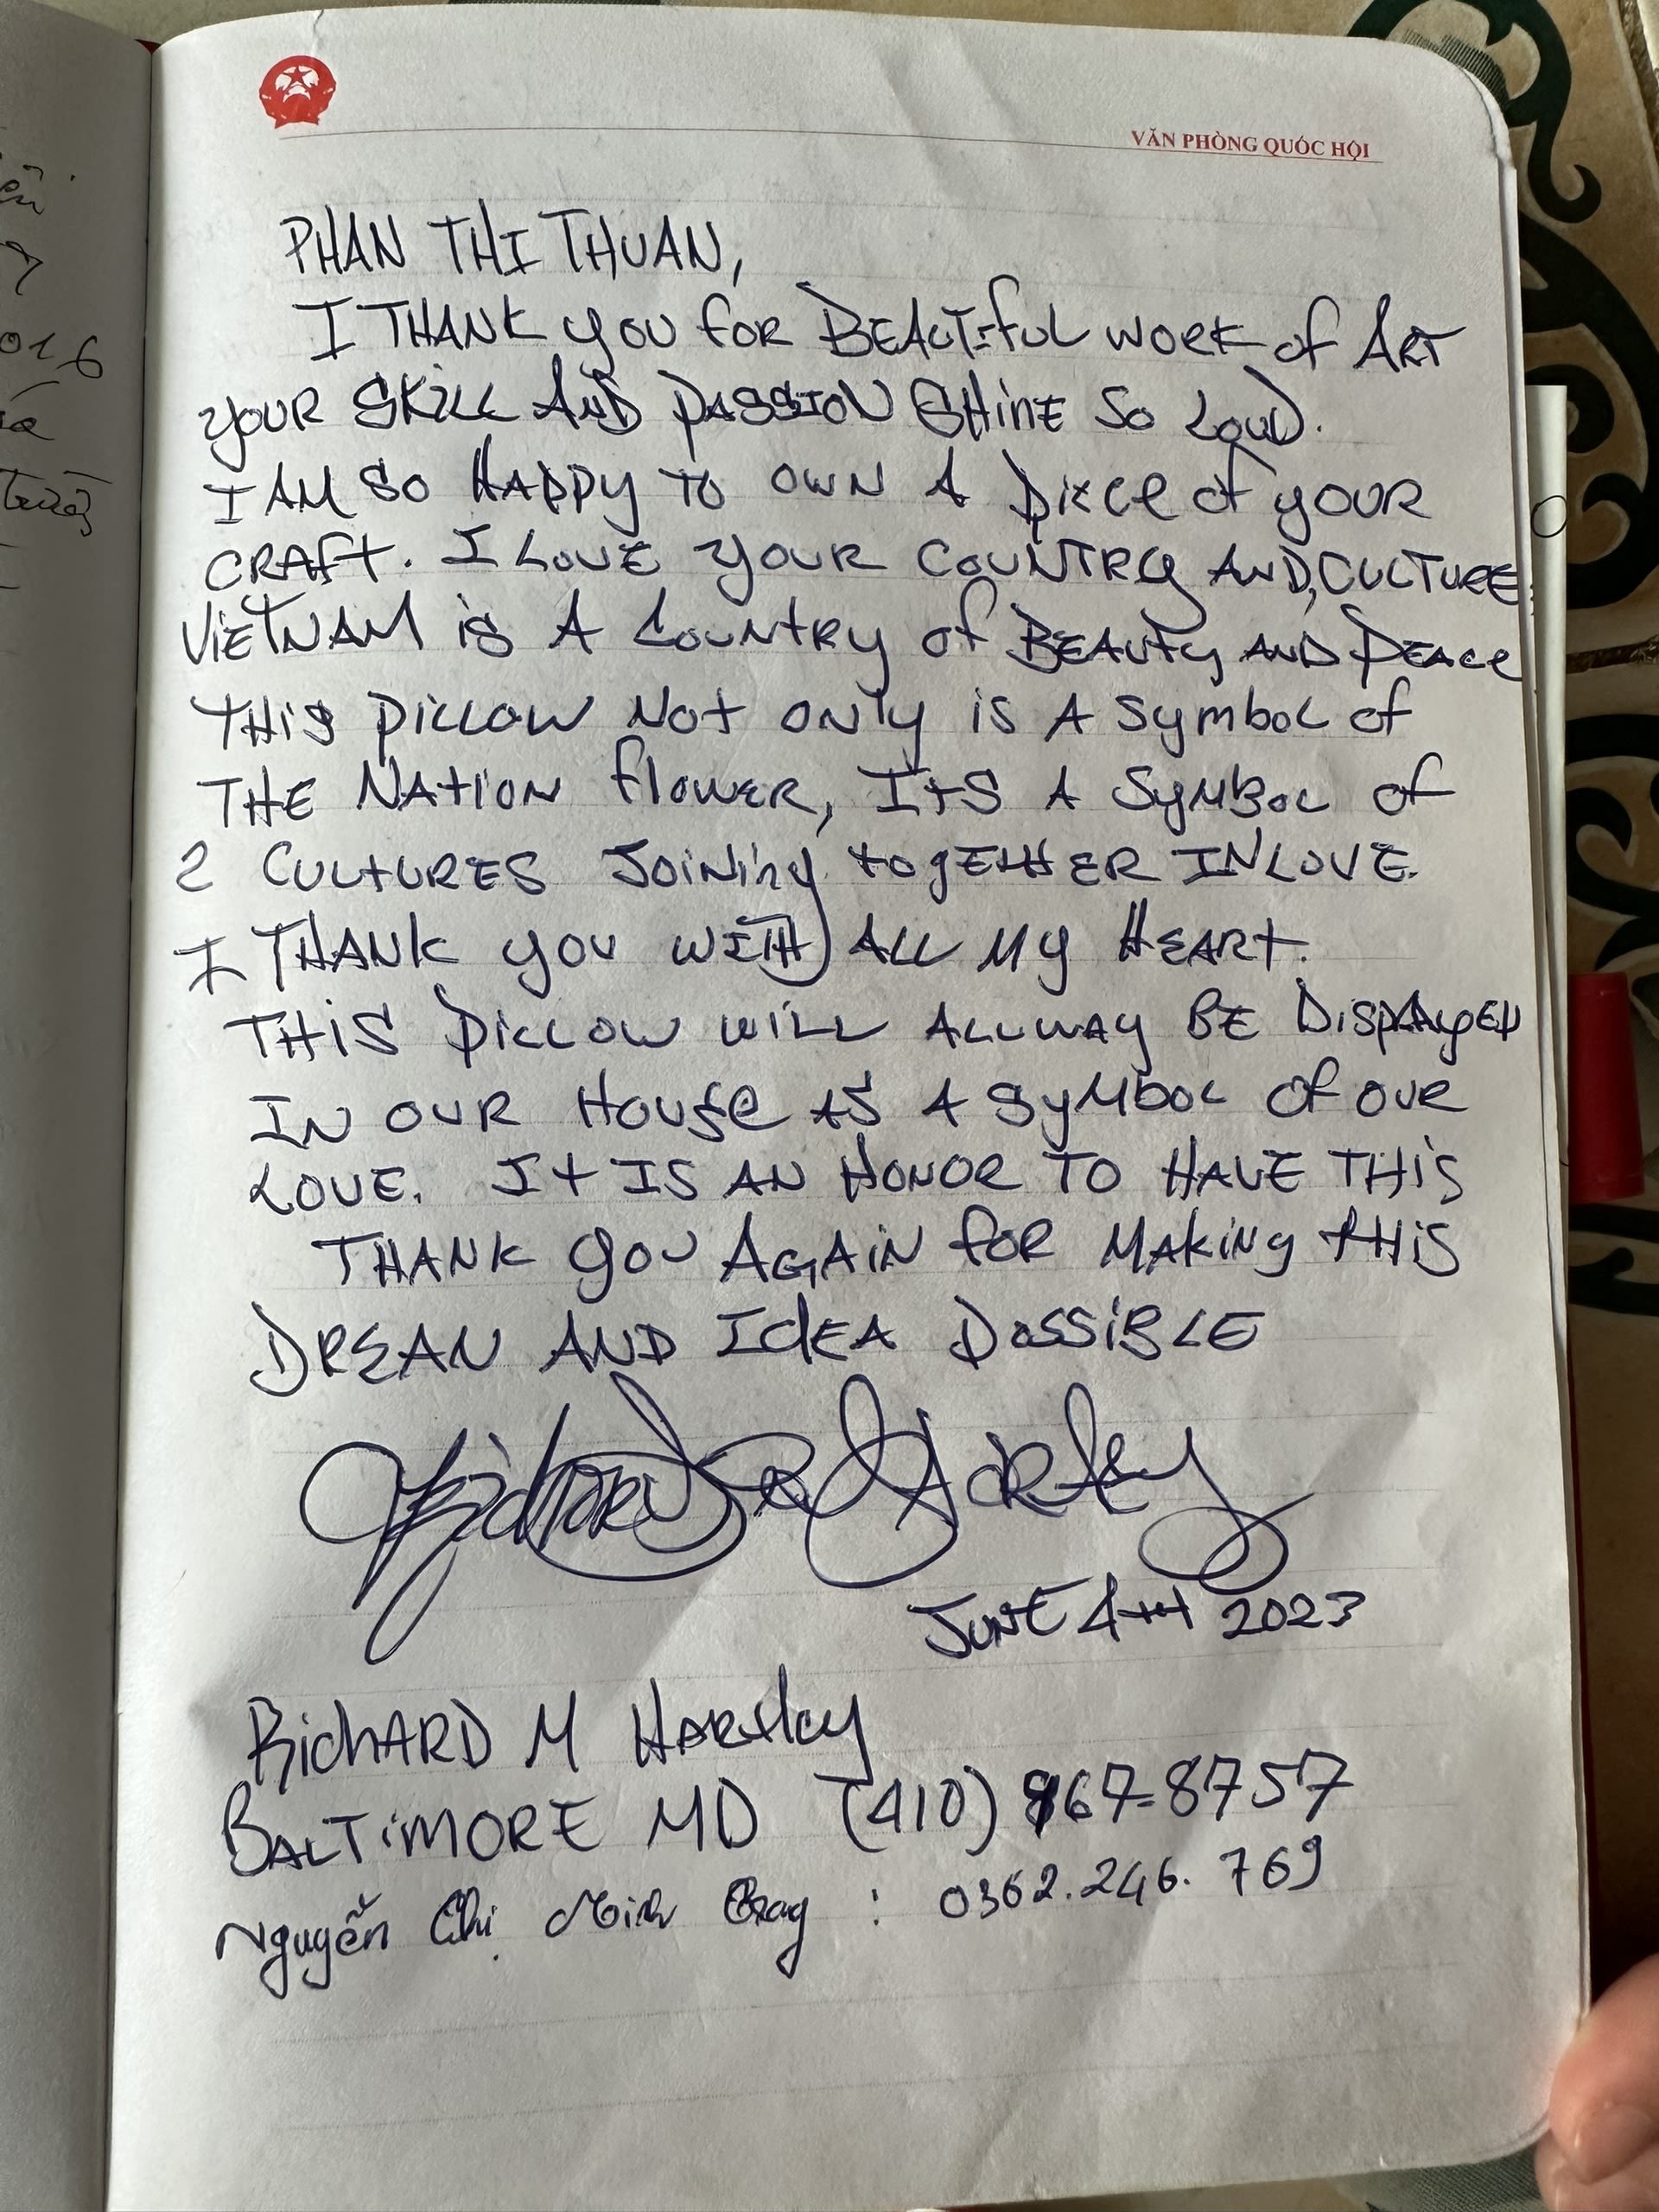 VĂN PHÒNG QUỐC HỘI
PHAN THI THUAN,
I THANK YOU FOR BEAUTIFUL WORK OF ART
YOUR SKILL AND PASSION SHINE SO LOUD.
I AM SO HAPPY TO OWN A PIECE OF YOUR
CRAFT. I LOVE YOUR COUNTRY AND, CULTURE.
VIETNAM IS A COUNTRY OF BEAUTY AND PEACE
THIS PILLOW NOT ONLY IS A SYMBOL OF
THE NATION FLOWER, ITS A SYMBOL OF
2 CULTURES JOINING TOGETHER IN LOVE.
I THANK YOU WITH ALL MY HEART.
THIS PILLOW WILL ALLWAY BE DISPLAYED
IN OUR HOUSE AS A SYMBOL OF OUR
LOVE. IT IS AN HONOR TO HAVE THIS
THANK YOU AGAIN FOR MAKING THIS
DREAM AND IDEA POSSIBLE
JUNE 4TH 2023
RICHARD M HARTLEY
BALTIMORE MD (410) 967-8757
Nguyễn Chị Minh : 0362.246.769
016